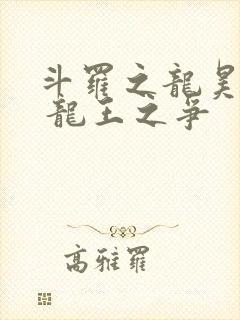 斗羅之龍
龍王之爭
高雅羅